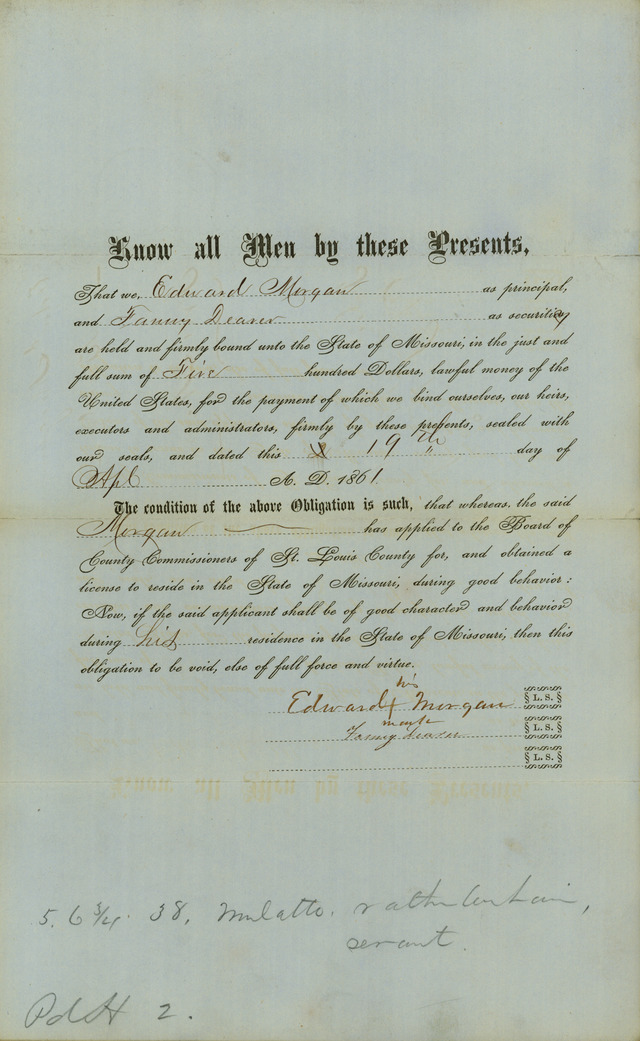 Know all Men by these Presents,
That we, Edward Morgan as principal,
and Fanny Dearer as security
are held and firmly bound unto the State of Missouri, in the just and
full sum of Five hundred Dollars, lawful money of the
United States, for the payment of which we bind ourselves, our heirs,
executors and administrators, firmly by these presents, sealed with
our seals, and dated this 19th day of
Apl A. D. 1861
The condition of the above Obligation is such, that whereas, the said
Morgan has applied to the Board of
County Commissioners of St. Louis County for, and obtained a
license to reside in the State of Missouri, during good behavior:
Now, if the said applicant shall be of good character and behavior
during his residence in the State of Missouri, then this
obligation to be void, else of full force and virtue.
his
Edward X Morgan L. S.
mark
Fanny Dearer L. S.
L. S.
5. 6 3/4. 38, Mulatto. rather
servant.
Pd 2.